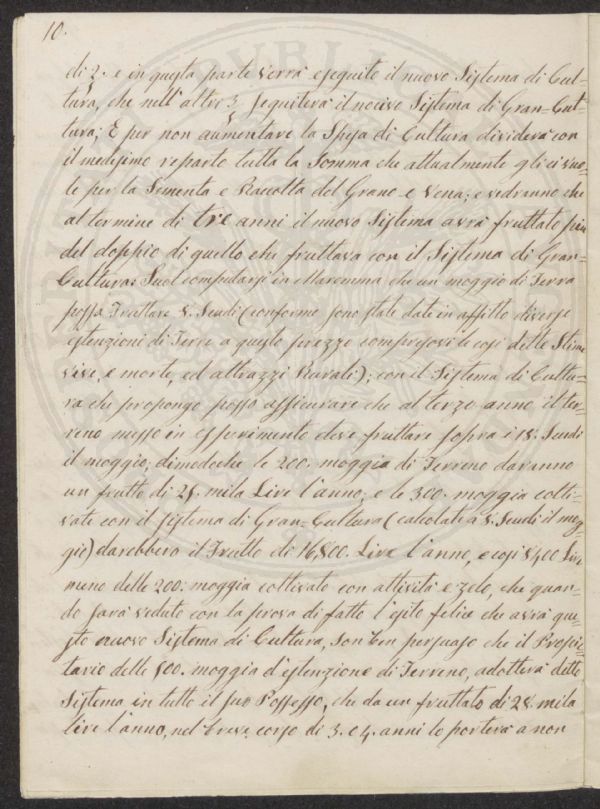 10.
di 2. e in questa parte verrà eseguito il nuovo Sistema di Cul=
tura, che nell'altre 3. seguiterà il nocivo Sistema di Gran=Cul=
tura; E per non aumentare la Spesa di Cultura dividerà con
il medesimo reparto tutta la Somma che attualmente gli ci vuo=
le per la Sementa e Raccolta del Grano e Vena; e vedranno che
al termine di tre anni il nuovo Sistema avrà fruttato più
del doppio di quello che fruttava con il Sistema di Gran=
Cultura: Suol computarsi in Maremma che un moggio di Terra
possa Fruttare 8. Scudi (conforme sono state date in affitto diverse
estenzioni di Terre a questo prezzo compresovi le così dette Stime
vive, e morte, ed attrazzi Rurali); con il Sistema di Cultu=
ra che propongo posso assicurare che al terzo anno il ter=
reno messo in esperimento deve fruttare sopra i 18. Scudi
il moggio; dimodochè le 200. moggia di Terreno daranno
un frutto di 25. mila Lire l'anno; e le 300. moggia colti=
vate con il sistema di Gran-Cultura (calcolate a 8. Scudi il mog=
gio) darebbero il Frutto di 16,800. Lire l'anno, e così 8400 Lire
meno delle 200: moggia coltivate con attività e zelo, che quan=
do sarà veduto con la prova di fatto l'esito felice che avrà que=
sto nuovo Sistema di Cultura, son ben persuaso che il Proprie=
tario delle 500. moggia d'estenzione di Terreno, adotterà detto
Sistema in tutto il suo Possesso, che da un fruttato di 28. mila
lire l'anno, nel breve corso di 3. e 4. anni lo porterà a non